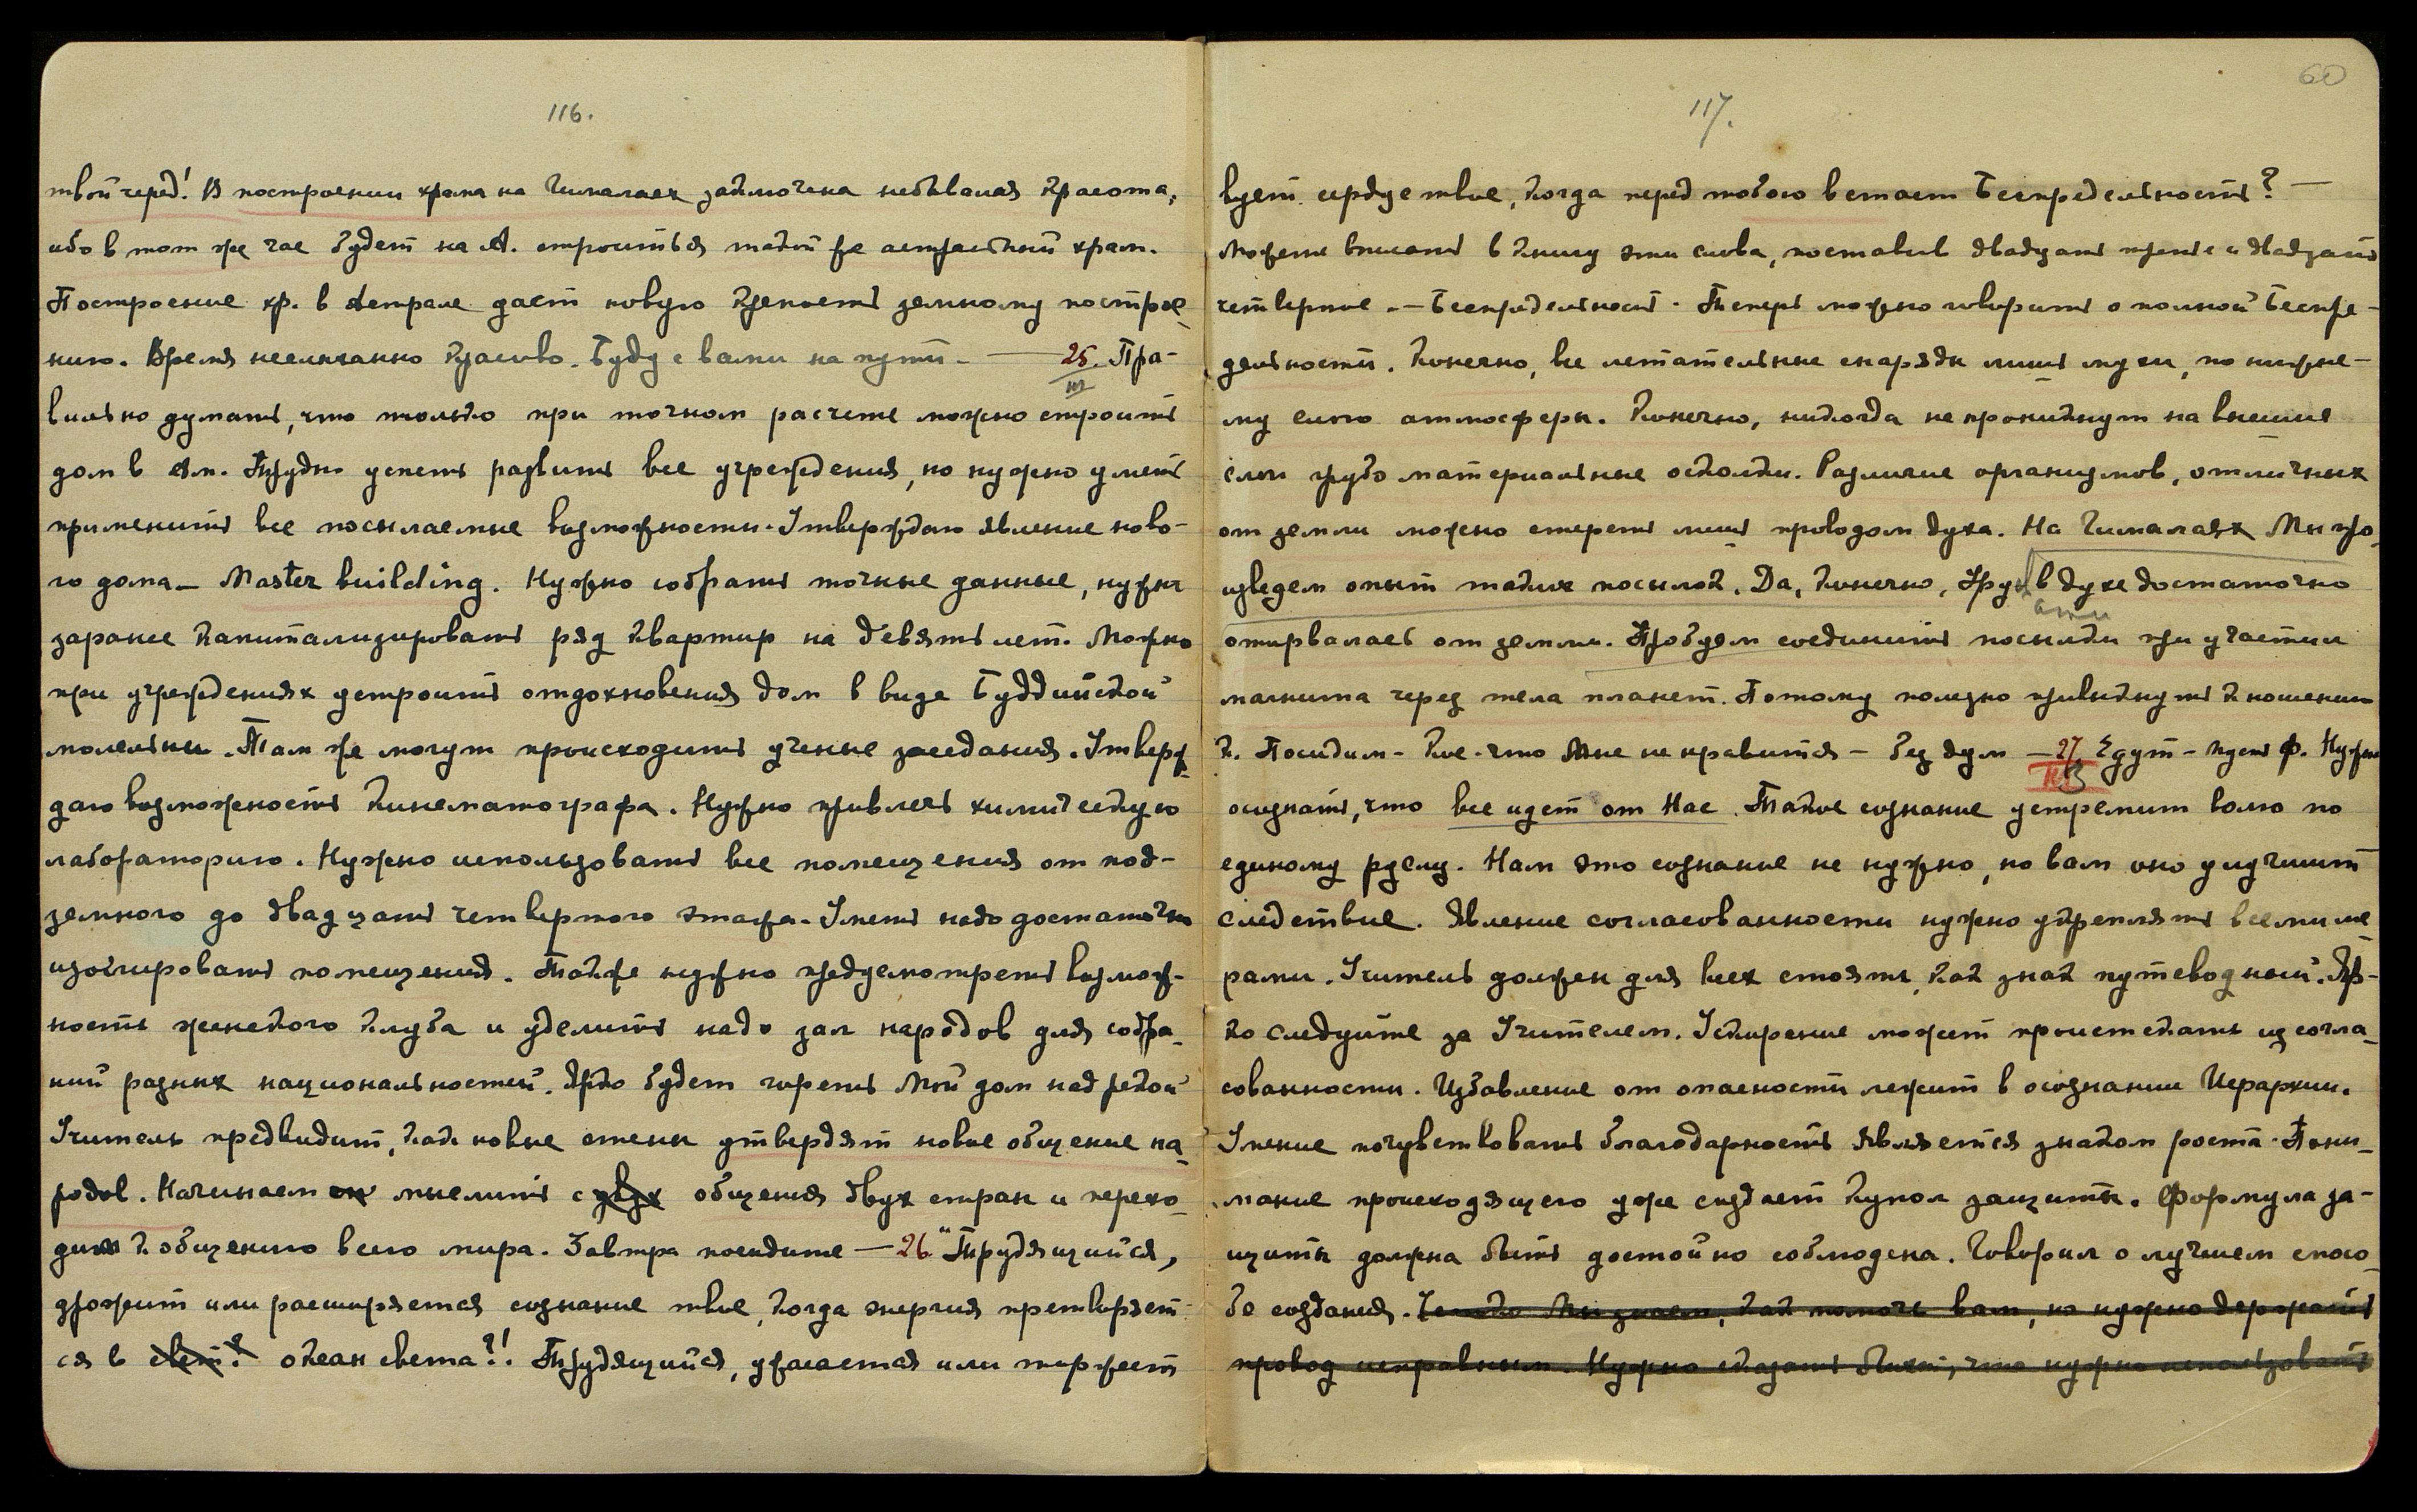 116.
твой черед! В построении храма на Гималаях заключена небывалая красота,
ибо в тот же час будет на А. строиться такой же астральный храм.
Построение хр. в Астрале дает новую крепость земному построе-
нию. Время несказанно красиво. Буду с вами на пути. — 25. Пра-
III
вильно думать, что только при точном расчете можно строить
дом в Ам. Трудно успеть развить все учреждения, но нужно уметь
применить все посылаемые возможности. Утверждаю явление ново-
го дома — Master building. Нужно собрать точные данные, нужно
заранее капитализировать ряд квартир на девять лет. Можно
при учреждениях устроить отдохновения дом в виде Буддийской
молельни. Там же могут происходить ученые заседания. Утверж-
даю возможность кинематографа. Нужно привлечь химическую
лабораторию. Нужно использовать все помещения от под-
земного до двадцать четвертого этажа. Уметь надо достаточно
изолировать помещения. Также нужно предусмотреть возмож-
ность женского клуба и уделить надо зал народов для собра-
ний разных национальностей. Ярко будет гореть Мой дом над рекой
Учитель предвидит, как новые стены утвердят новое общение на-
родов. Начинаем мыслить с общения двух стран и перехо-
дим к общению всего мира. Завтра посидите — 26. "Трудящийся,
дрожит или расширяется сознание твое, когда энергия претворяет-
ся в свет? океан света?! Трудящийся, ужасается или торжест
60
117.
вует сердце твое, когда перед тобою встает Беспредельность? —
Можете вписать в книгу эти слова, поставив двадцать третье и двадцать
четвертое. — Беспредельность. Теперь можно говорить о полной Беспре-
дельности. Конечно, все летательные снаряды лишь мухи, по нижне-
му слою атмосферы. Конечно, никогда не проникнут на внешние
слои грубо материальные осколки. Различие организмов, отличных
от земли можно стереть лишь проводом духа. На Гималаях Мы про-
изведем опыт таких посылок. Да, конечно, Урус. в духе достаточно
оторвалась от земли. Пробуем соединить посылки при участии
магнита через тела планет. Потому полезно привыкнуть к ношению
к. Посидим — Кое-что Мне не нравится — без дум — 27. Едут — идет Ф. Нужно
III
осознать, что все идет от Нас. Такое сознание устремит волю по
единому руслу. Нам это сознание не нужно, но вам оно улучшит
следствие. Явление согласованности нужно укреплять всеми ме-
рами. Учитель должен для всех стоять, как знак путеводный. Яр-
ко следуйте за Учителем. Ускорение может проистекать из согла-
сованности. Избавление от опасности лежит в осознании Иерархии.
Умение почувствовать благодарность является знаком роста. Пони-
мание происходящего уже создает купол защиты. Формула за-
щиты должна быть достойно соблюдена. Говорил о лучшем спосо-
бе создания. Мы знаем, как помочь вам, но нужно держать
провод исправным. Нужно сказать что нужно использовать